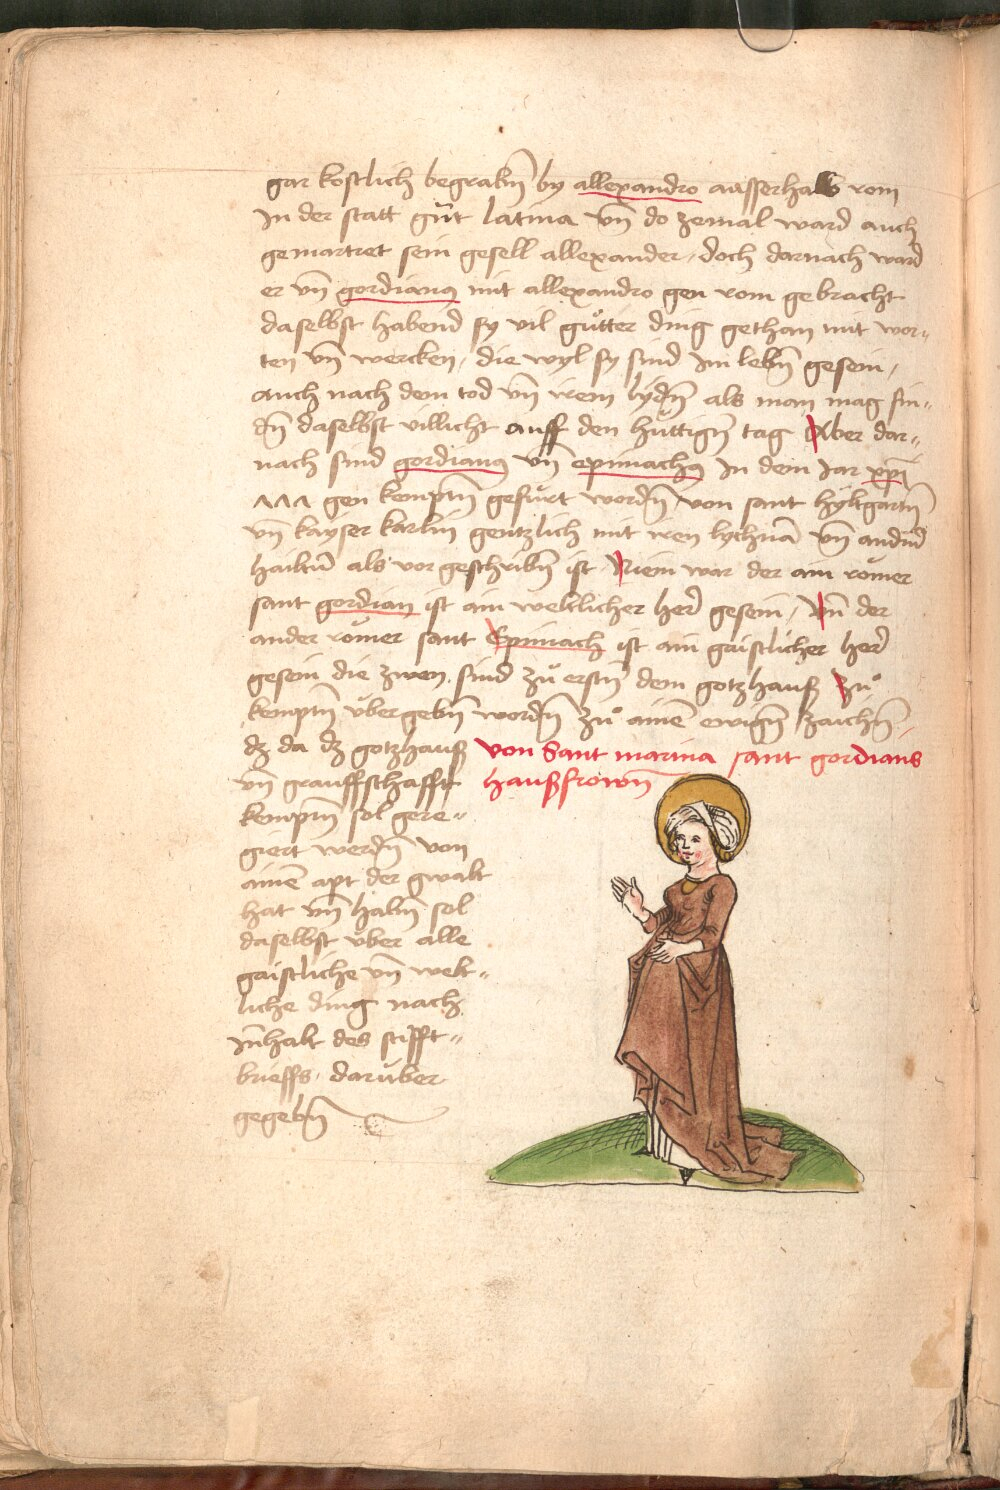 gar kostlich begrabn̄ by allexandro ausserhalb rom
In der statt gůt latina vn̄ do zemal ward auch
gemartret sein gesell allexander / doch darnach ward
er vn̄ gordianus mit allexandro gen rom gebracht
daselbst habend sy vil gůtter ding gethan mit wor„
ten vn̄ wercken / die wyl sy sind Im lebn̄ gesein /
auch nach dem tod vn̄ irem lydn̄ als man mag fin„
dn̄ daselbst villicht auff den hüttign̄ tag Aber dar„
nach sind gordianus vn̄ epimachus In dem Jar xpi
gen kemptn̄ gefürt wordn̄ von sant hyltgartn̄
vn̄ kayser karlin gentzlich mit iren lychnā vn̄ andm̄
hailtū als vor geschribn̄ ist Niem war der ain römer
sant gordian ist ain weltlicher her̄ gesein / Vn̄ der
ander römer sant Epimach ist ain gaistlicher her̄
gesein die zwen sind zů erstn̄ dem gotzhauß zů
kemptn̄ übergebn̄ wordn̄ zů ainē ewign̄ zaichn̄
dz da dz gotzhauß
vn̄ grauffschafft
kemptn̄ sol gere„
giert werdn̄ von
ainē apt der gwalt
hat vn̄ habn̄ sol
daselbst über alle
gaistliche vn̄ welt„
liche ding nach
Inhalt des stifft„
brieffs darüber
gegebn̄
von Sant marina sant gordians
haußfrown̄